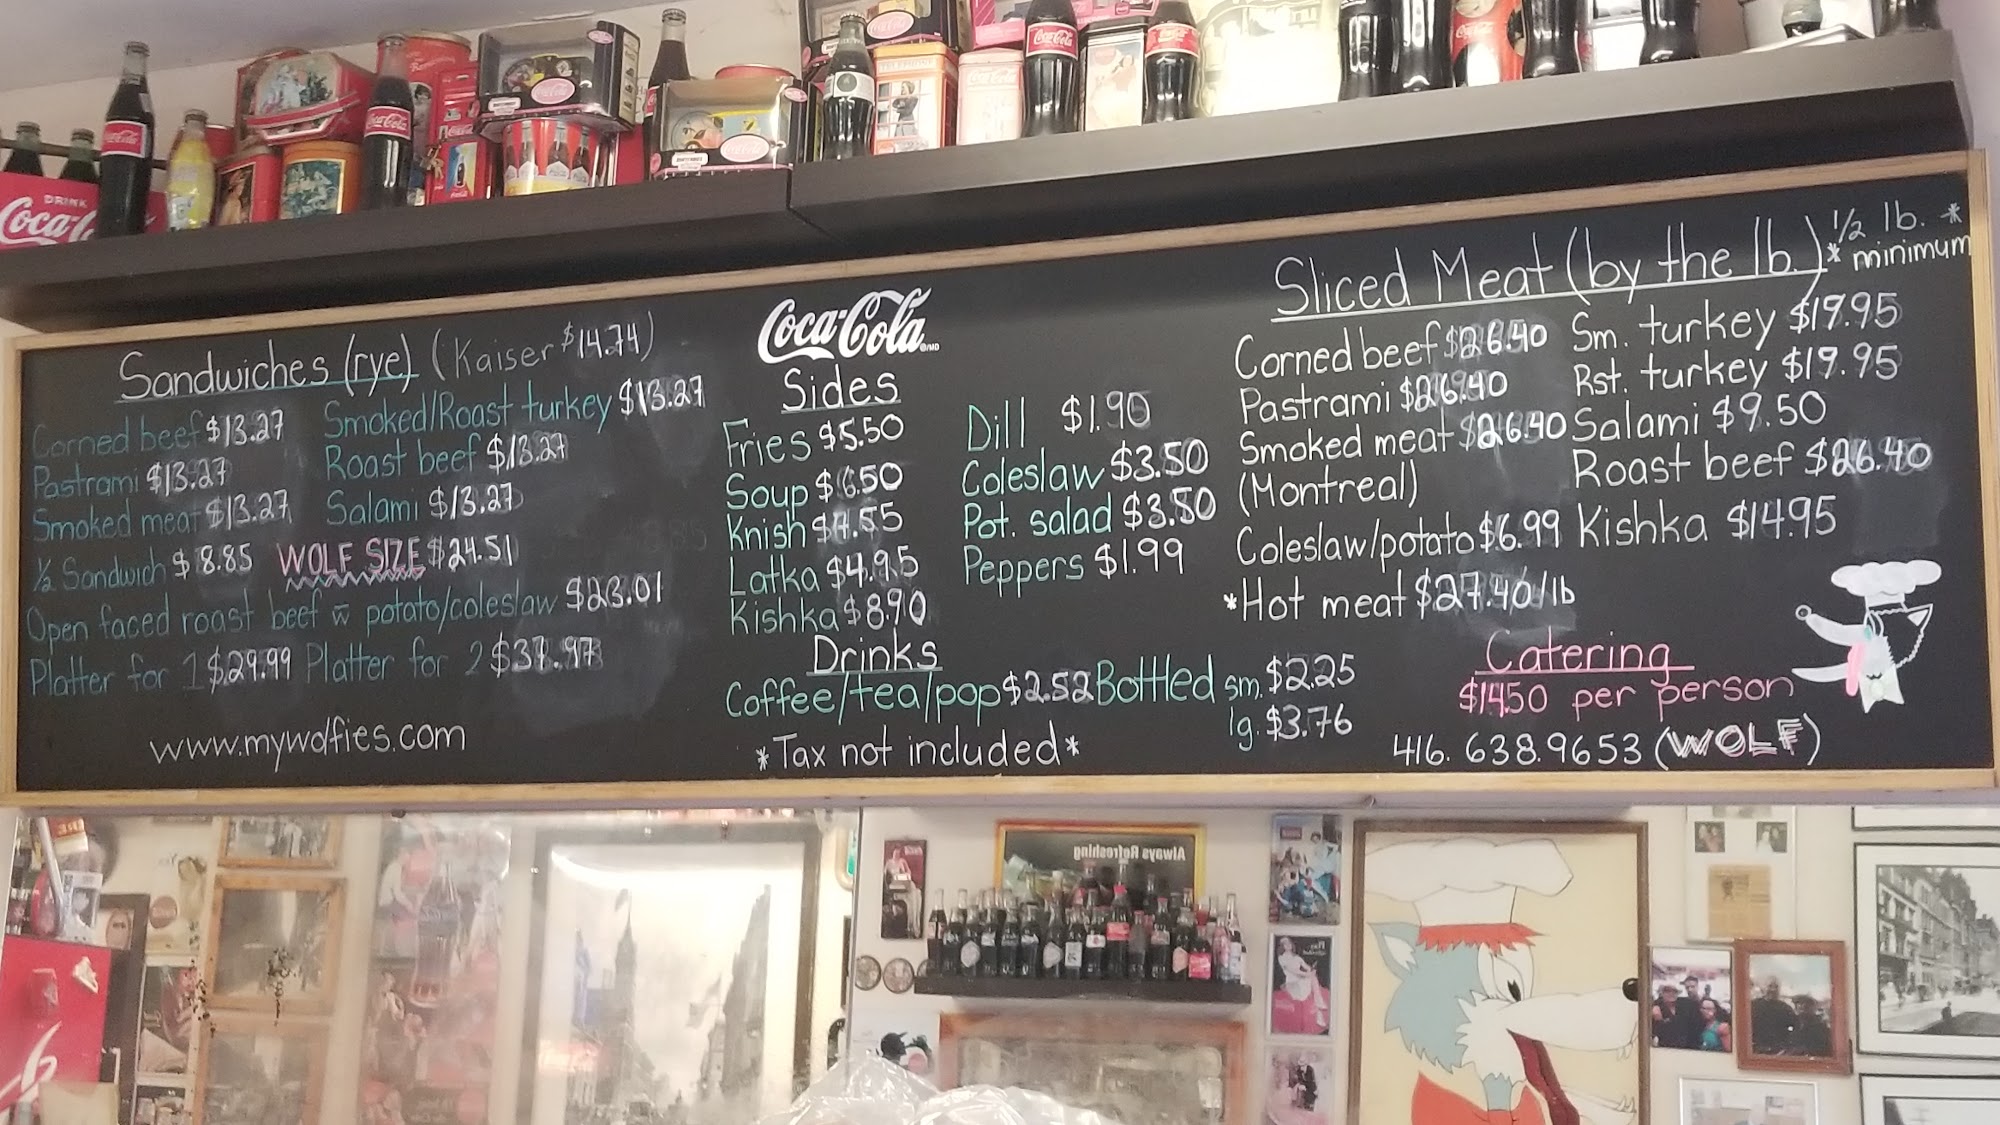 DRINK
Coca-Cola
Sandwiches (rye) (Kaiser $14.74)
Corned beef $13.27
Pastrami $13.27
Smoked meat $13.27
Smoked/Roast turkey $13.27
Roast beef $13.27
Salami $13.27
½ Sandwich $8.85 WOLF SIZE $24.51
Open faced roast beef w̄ potato/coleslaw $23.01
Platter for 1 $29.99 Platter for 2 $37.97
www.mywolfies.com
Coca-Cola
Sides
Fries $5.50
Soup $6.50
Knish $4.55
Latka $4.95
Kishka $8.90
Dill $1.90
Coleslaw $3.50
Pot. salad $3.50
Peppers $1.99
Drinks
Coffee/tea/pop $2.52 Bottled sm. $2.25
lg. $3.76
*Tax not included*
Sliced Meat (by the lb.) * ½ lb. *
minimum
Corned beef $26.40
Pastrami $26.40
Smoked meat $26.40
(Montreal)
Coleslaw/potato $6.99
*Hot meat $27.40/lb
Sm. turkey $19.95
Rst. turkey $19.95
Salami $9.50
Roast beef $26.40
Kishka $14.95
Catering
$14.50 per person
416.638.9653 (WOLF)
Always Refreshing